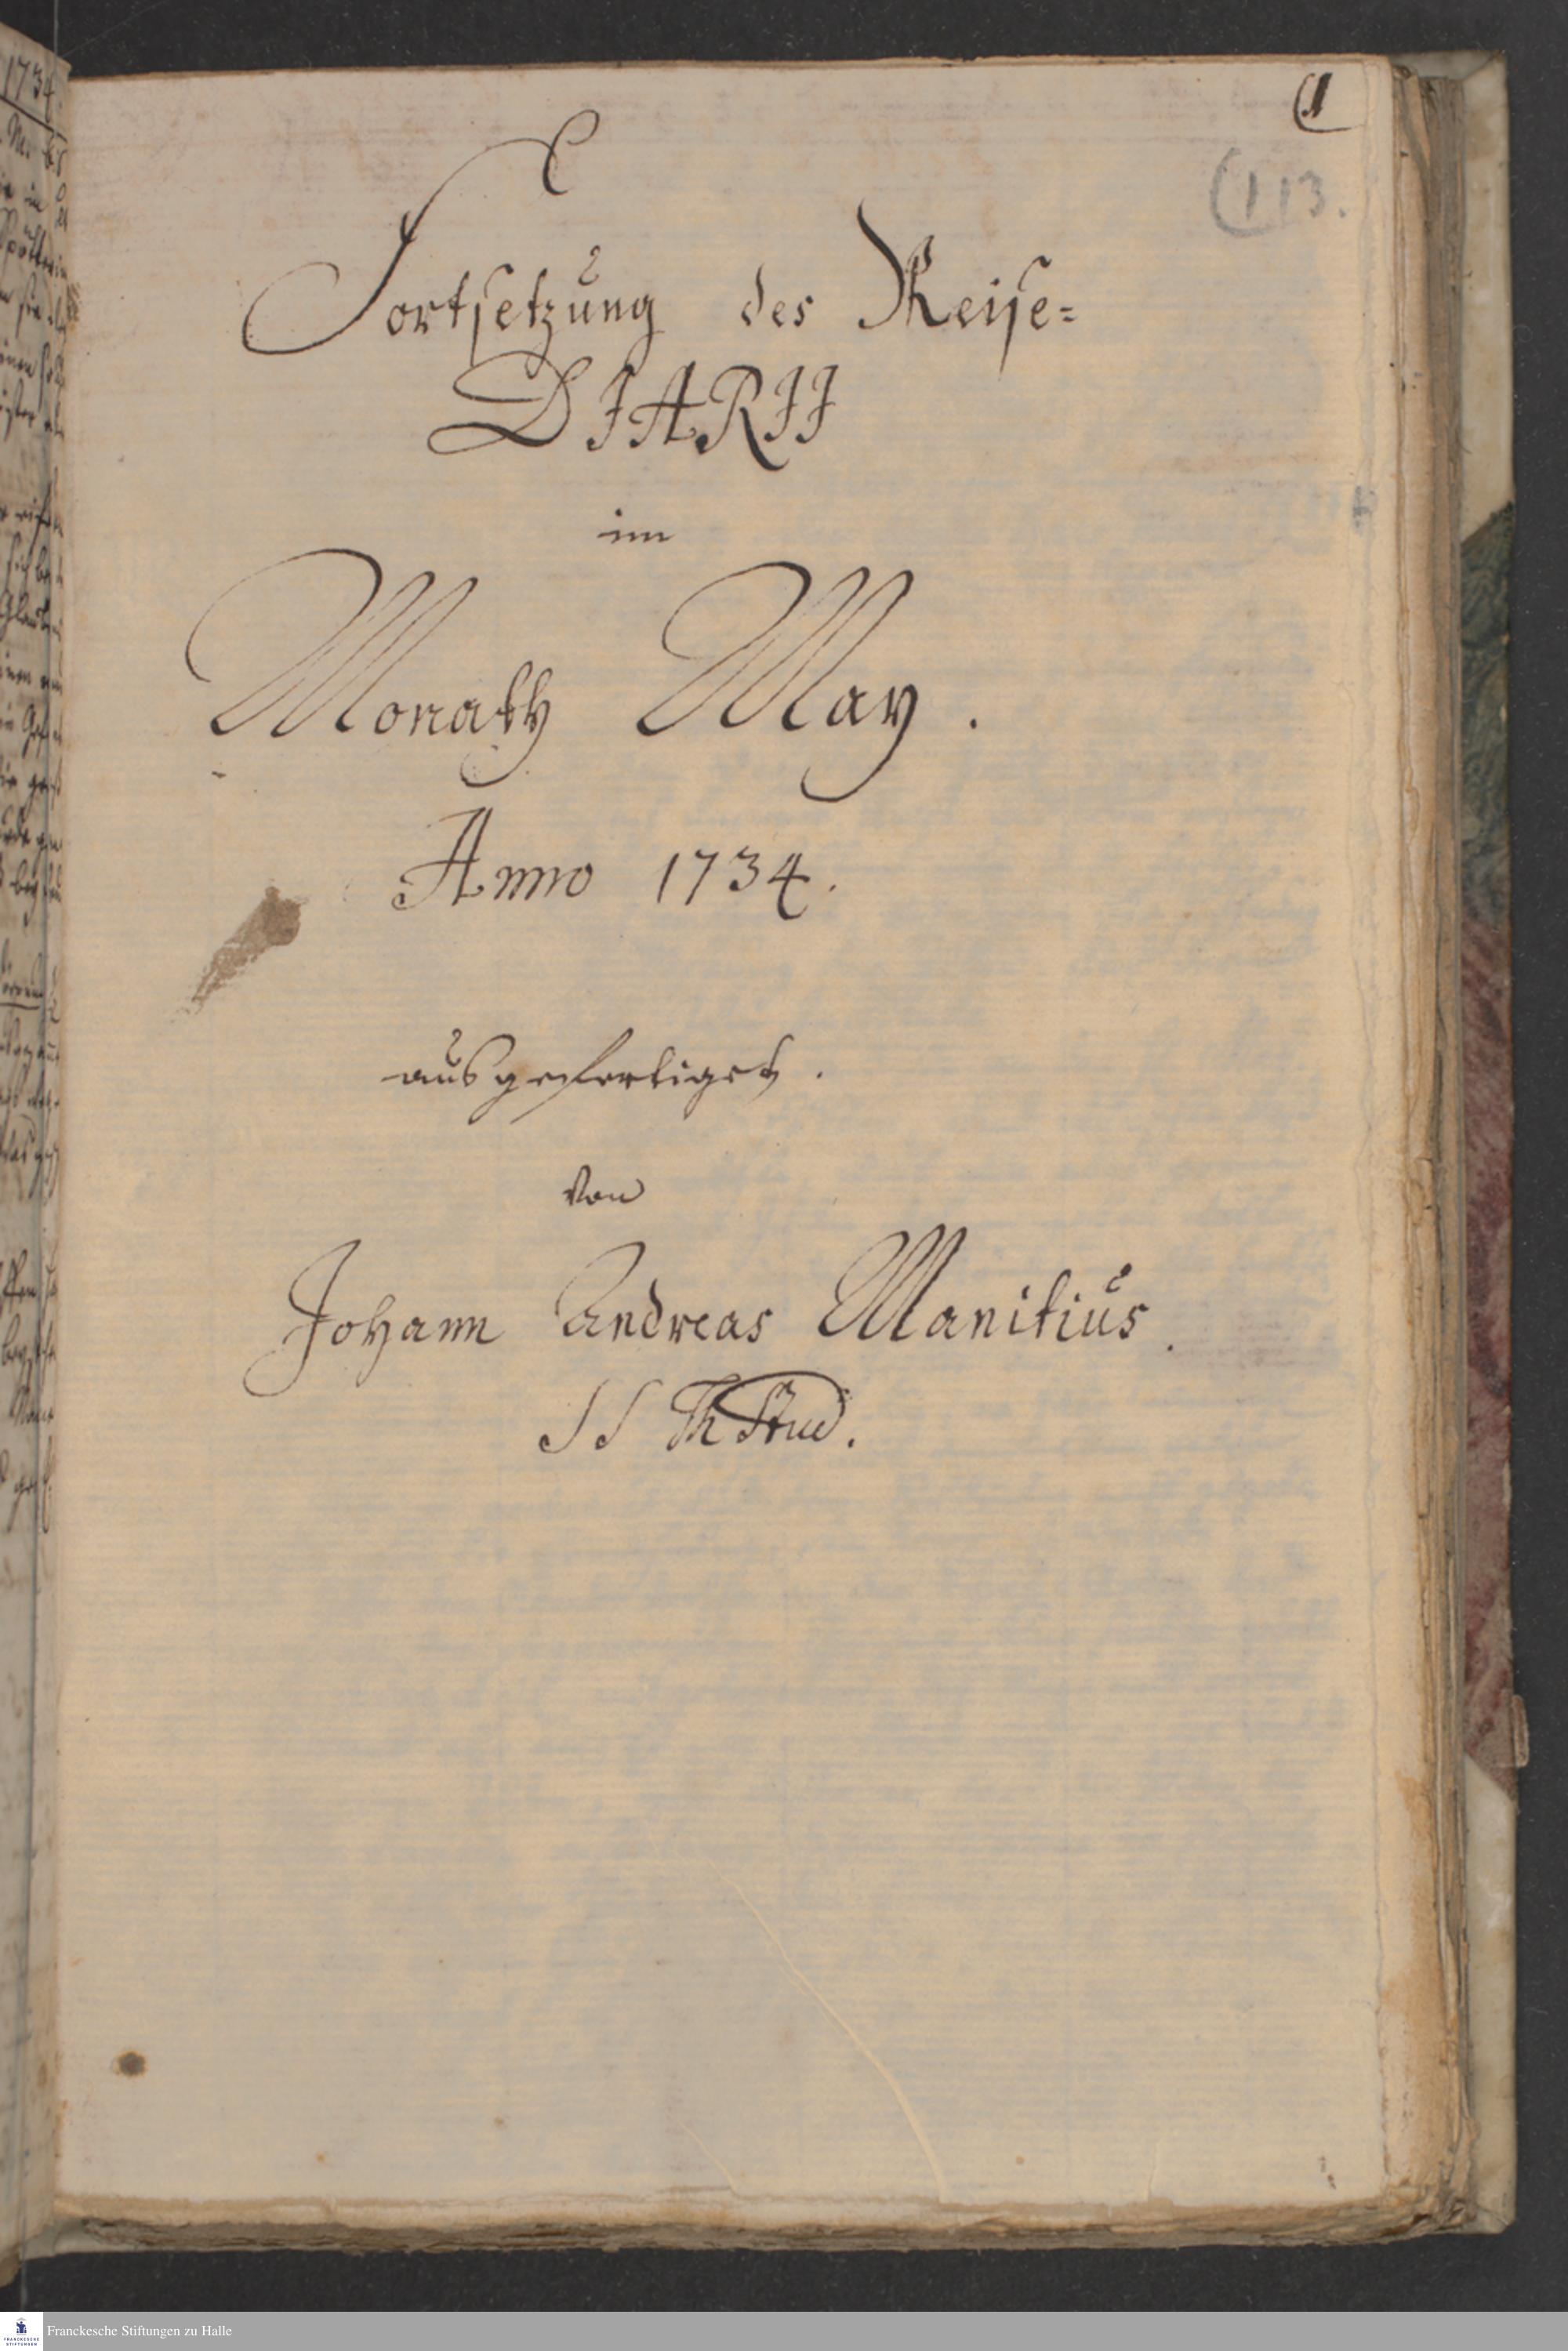 (1
(113.
Fortsetzung des Reise=
DIARII
im
Monath May.
Anno 1734.
ausgefertiget.
von
Johann Andreas Manitius.
SS Th Stud.
1734
Franckesche Stiftungen zu Halle